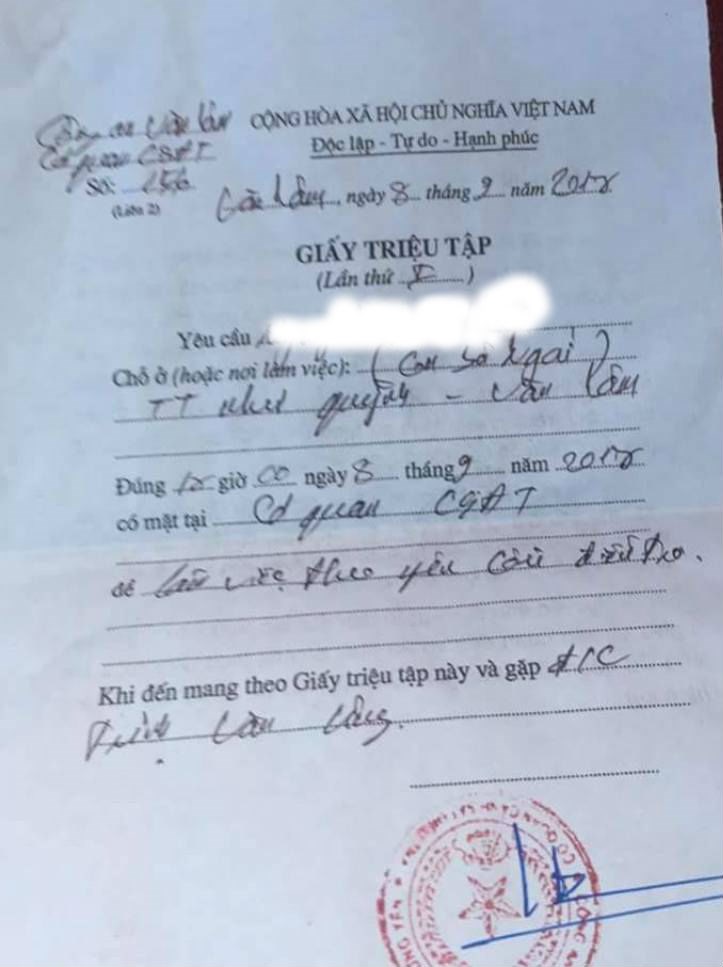 Công an Văn Lâm
CỘNG HÒA XÃ HỘI CHỦ NGHĨA VIỆT NAM
Cơ quan CSĐT
Độc lập - Tự do - Hạnh phúc
Số: 156
(Liên 2)
Văn Lâm, ngày 8 tháng 9 năm 2018
GIẤY TRIỆU TẬP
(Lần thứ I)
Yêu cầu
Chỗ ở (hoặc nơi làm việc):
TT Như Quỳnh - Văn Lâm
Đúng giờ 00 ngày 8 tháng 9 năm 2018
có mặt tại Cơ quan CSĐT
để làm việc theo yêu cầu điều tra.
Khi đến mang theo Giấy triệu tập này và gặp đ/c
Văn